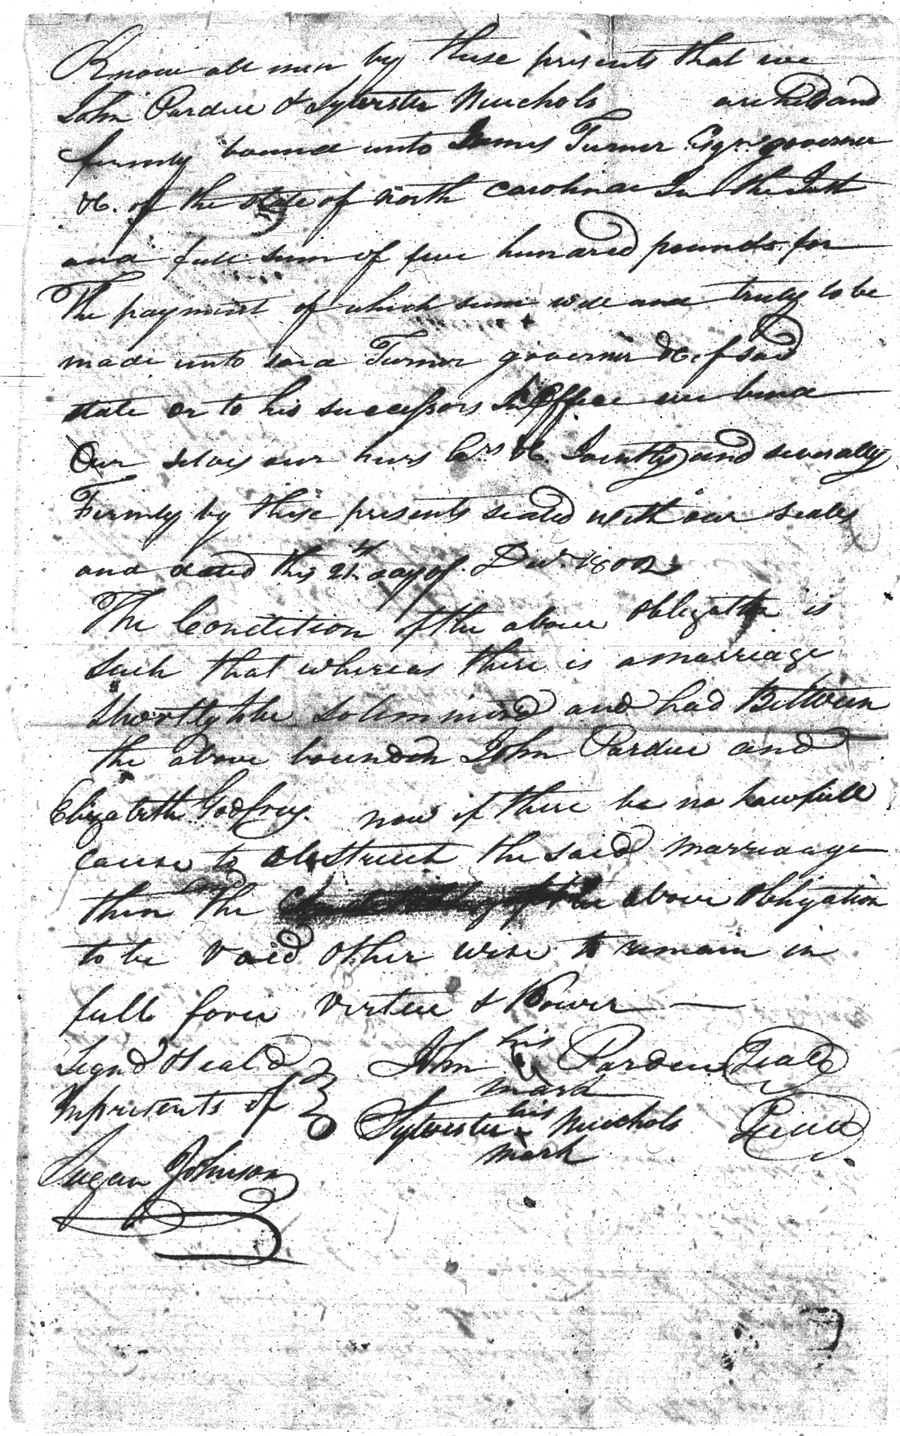 Know all men by these presents that we
John Pardue & Sylvester Nuchols are held and
firmly bound unto James Turner Esqr governor
&c. of the state of North Carolina In the Just
and full sum of five hundred pounds for
The payment of which sum well and truly to be
made unto said Turner governor &c of said
state or to his successors In office we bind
Our selves our heirs &c Jointly and severally
Firmly by these presents sealed with our seals
and dated this 21st day of Decr 1802
The Condition of the above obligation is
such that whereas there is a marriage
shortly to be solemnized and had Between
the above bounden John Pardue and
Elizabeth Godfrey now if there be no lawfull
cause to obstruct the said marriage
then the above obligation
to be void other wise to remain in
full force virtue & Power
Signd & Seald John his mark Pardue Seal
In presents of Sylvester his mark Nuchols Seal
Johnson